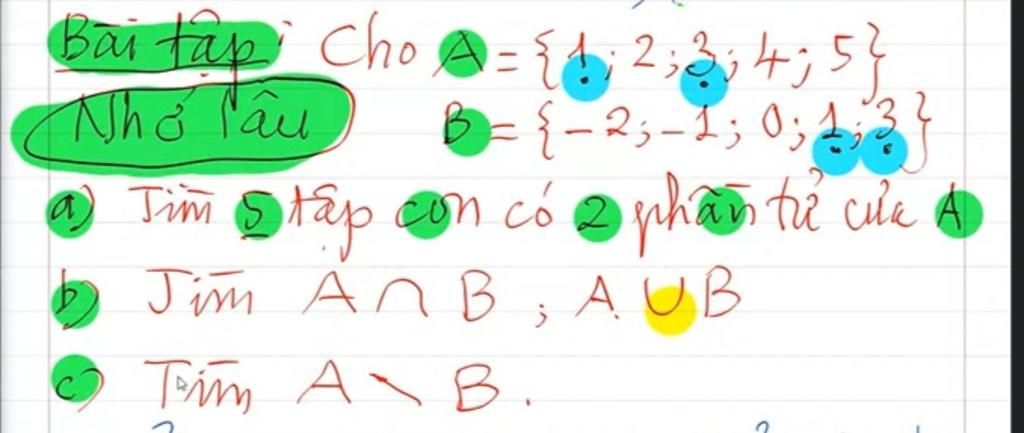 Bài tập: Cho A = {1; 2; 3; 4; 5}
Nhớ lâu B = {-2; -1; 0; 1; 3}
a) Tìm 5 tập con có 2 phần tử của A
b) Tìm A ∩ B ; A ∪ B
c) Tìm A \ B.